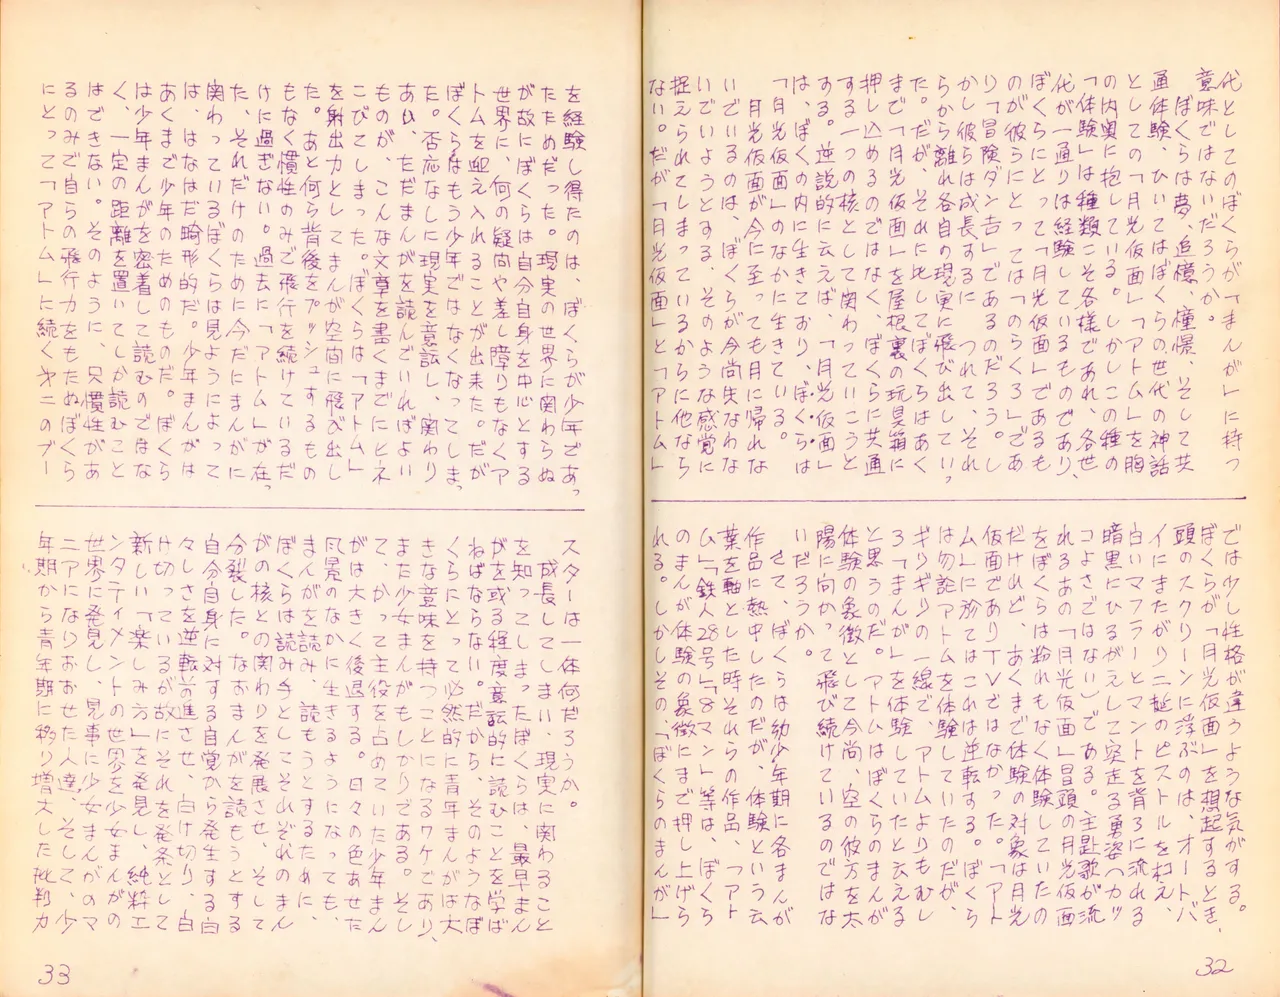 代としてのぼくらが「まんが」に持つ
意味ではないだろうか。
ぼくらは夢、追憶、憧憬、そして共
通体験、ひいてはぼくらの世代の神話
としての「月光仮面」「アトム」を胸
の内奥に抱している。しかしこの種の
「体験」は種類こそ各様であれ、各世
代が一通りは経験しているものであり、
ぼくらにとって「月光仮面」であるも
のが彼らにとっては「のらくろ」であ
り「冒険ダン吉」であるのだろう。し
かし彼らは成長するにつれて、それ
らから離れ各自の現実に飛び出してい
った。だが、それに比してぼくらはあく
まで「月光仮面」を屋根裏の玩具箱に
押し込めるのではなく、ぼくらに共通
する一つの核として関わっていこうと
する。逆説的に云えば、「月光仮面」
は、ぼくの内に生きており、ぼくらは
「月光仮面」のなかに生きている。
月光仮面が今に至っても月に帰れな
いでいるのは、ぼくらが今尚失なわな
いでいようとする、そのような感覚に
捉えられてしまっているからに他なら
ない。だが「月光仮面」と「アトム」
では少し性格が違うような気がする。
ぼくらが「月光仮面」を想起するとき、
頭のスクリーンに浮ぶのは、オートバ
イにまたがり二挺のピストルをかまえ、
白いマフラーとマントを背ろに流れる
暗黒にひるがえして突走る勇姿(カッ
コよさではない)である。主題歌が流
れるあの「月光仮面」冒頭の月光仮面
をぼくらは紛れもなく体験していたの
だけれど、あくまで体験の対象は月光
仮面でありTVではなかった。「アト
ム」に於てはこれは逆転する。ぼくら
は勿論アトムを体験していたのだが、
ギリギリの一線で、アトムよりもむし
ろ「まんが」を体験していたと云える
と思うのだ。アトムはぼくらのまんが
体験の象徴として今尚、空の彼方を太
陽に向かって飛び続けているのではな
いだろうか。
さて、ぼくらは幼少年期に各まんが
作品に熱中したのだが、体験という云
葉を軸とした時それらの作品、「アト
ム」「鉄人28号」「8マン」等は、ぼくら
のまんが体験の象徴にまで押し上げら
れる。しかしその、「ぼくらのまんが」
32
を経験し得たのは、ぼくらが少年であ
ったためだった。現実の世界に関わらぬ
が故にぼくらは自分自身を中心とする
世界に、何の疑問や差し障りもなくア
トムを迎え入れることが出来た。だが
ぼくらはもう少年ではなくなってしま
った。否応なしに現実を意識し、関わり
あい、ただまんがを読んでいればよい
ものが、こんな文章を書くまでにヒネ
こびてしまった。ぼくらは「アトム」
を射出力としてまんが空間に飛び出し
た。あと何ら背後をプッシュするもの
もなく慣性のみで飛行を続けているだ
けに過ぎない。過去に「アトム」が在
った、それだけのために今だにまんがに
関わっているぼくらは見ようによって
は、はなはだ畸形的だ。少年まんがは
あくまで少年のためのものだ。ぼくら
は少年まんがを密着して読むのではな
く、一定の距離を置いてしか読むこと
はできない。そのように、只慣性があ
るのみで自らの飛行力をもたぬぼくら
にとって「アトム」に続く才二のブー
スターは一体何だろうか。
成長してしまい、現実に関わること
を知ってしまったぼくらは、最早まん
がを或る程度意識的に読むことを学ば
ねばならない。だから、そのようなぼ
くらにとって必然的に青年まんがは大
きな意味を持つことになるワケであり、
また少女まんがもしかりである。そし
て、かつて主役を占めていた少年まん
がは大きく後退する。日々の色あせた
風景のなかに生きるようになっても、
まんがを読み、読もうとするために、
ぼくらは読み手としてこそそれぞれのまん
がの核との関わりを発展させ、そして
分裂した。なおまんがを読もうとする
自分自身に対する自覚から発生する白
々しさを逆転前進させ、白け切り、白
け切っているが故にそれを発条として
新しい「楽しみ方」を発見し、純粋エ
ンタティメントの世界を少女まんがの
世界に発見し、見事に少女まんがのマ
ニアになりおおせた人達、そして、少
年期から青年期に移り増大した批判力
33